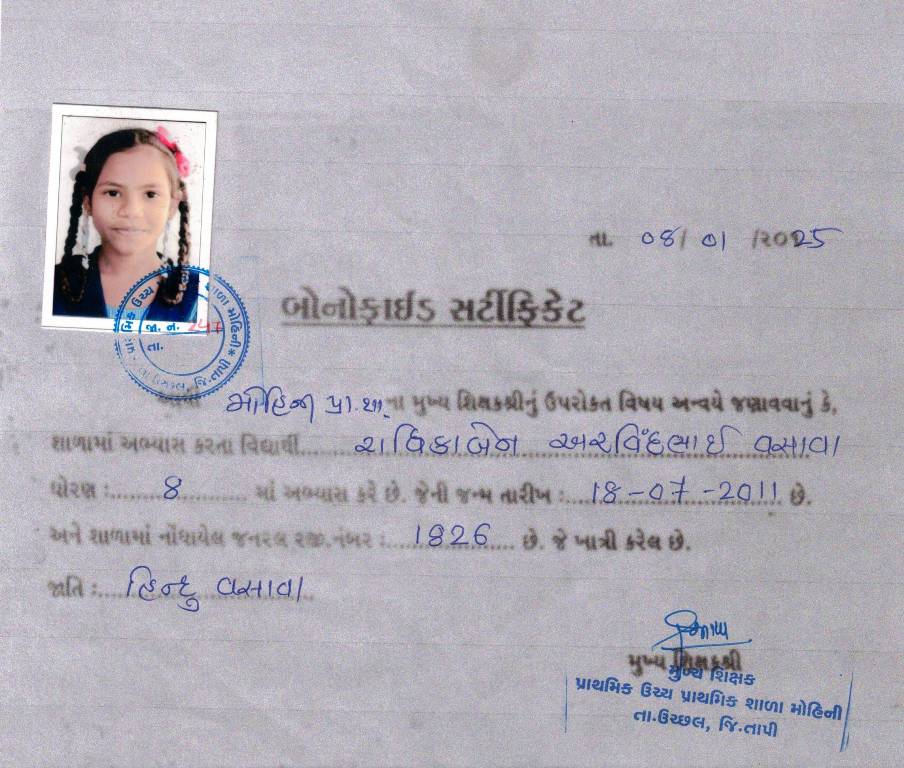 તા. ૦૪/ ૦૧ /૨૦૨5
બોનોફાઈડ સર્ટીફિકેટ
જા. ન. 247
તા.
મોહિની પ્રા.શા.ના મુખ્ય શિક્ષકશ્રીનું ઉપરોક્ત વિષય અન્વયે જણાવવાનું કે,
શાળામાં અભ્યાસ કરતા વિદ્યાર્થી.... રાધિકાબેન અરવિંદભાઈ વસાવા
ધોરણ :...... 8 .......... માં અભ્યાસ કરે છે. જેની જન્મ તારીખ :.... 18-07-2011 છે.
અને શાળામાં નોંધાયેલ જનરલ રજી.નંબર :.... 1826 .... છે. જે ખાત્રી કરેલ છે.
જાતિ :.... હિન્દુ વસાવા
મુખ્ય શિક્ષકશ્રી
મુખ્ય શિક્ષક
પ્રાથમિક ઉચ્ચ પ્રાથમિક શાળા મોહિની
તા.ઉચ્છલ, જિ.તાપી